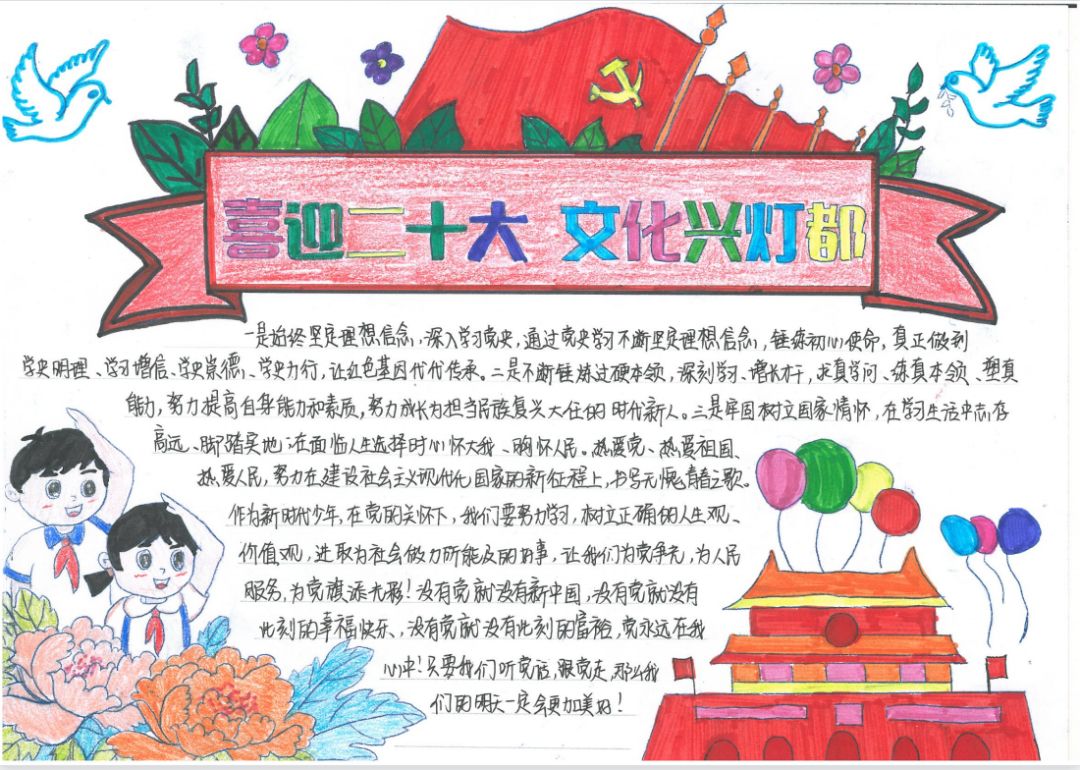 喜迎二十大 文化兴灯都
一是始终坚定理想信念，深入学习党史，通过党史学习不断坚定理想信念，锤炼初心使命，真正做到
学史明理、学习增信、学史崇德、学史力行，让红色基因代代传承。二是不断锤炼过硬本领，深刻学习、增长才干，求真学问、练真本领、塑真
能力，努力提高自身能力和素质，努力成长为担当民族复兴大任的时代新人。三是牢固树立国家情怀，在学习生活中志存
高远、脚踏实地；在面临人生选择时心怀大我、胸怀人民。热爱党、热爱祖国、
热爱人民，努力在建设社会主义现代化国家的新征程上，书写无愧青春之歌。
作为新时代少年，在党的关怀下，我们要努力学习，树立正确的人生观、
价值观，进取为社会做力所能及的事，让我们为党争光，为人民
服务，为党旗添光彩！没有党就没有新中国，没有党就没有
此刻的幸福快乐、没有党就没有此刻的富裕，党永远在我
心中！只要我们听党话，跟党走，那么我
们的明天一定会更加美好！